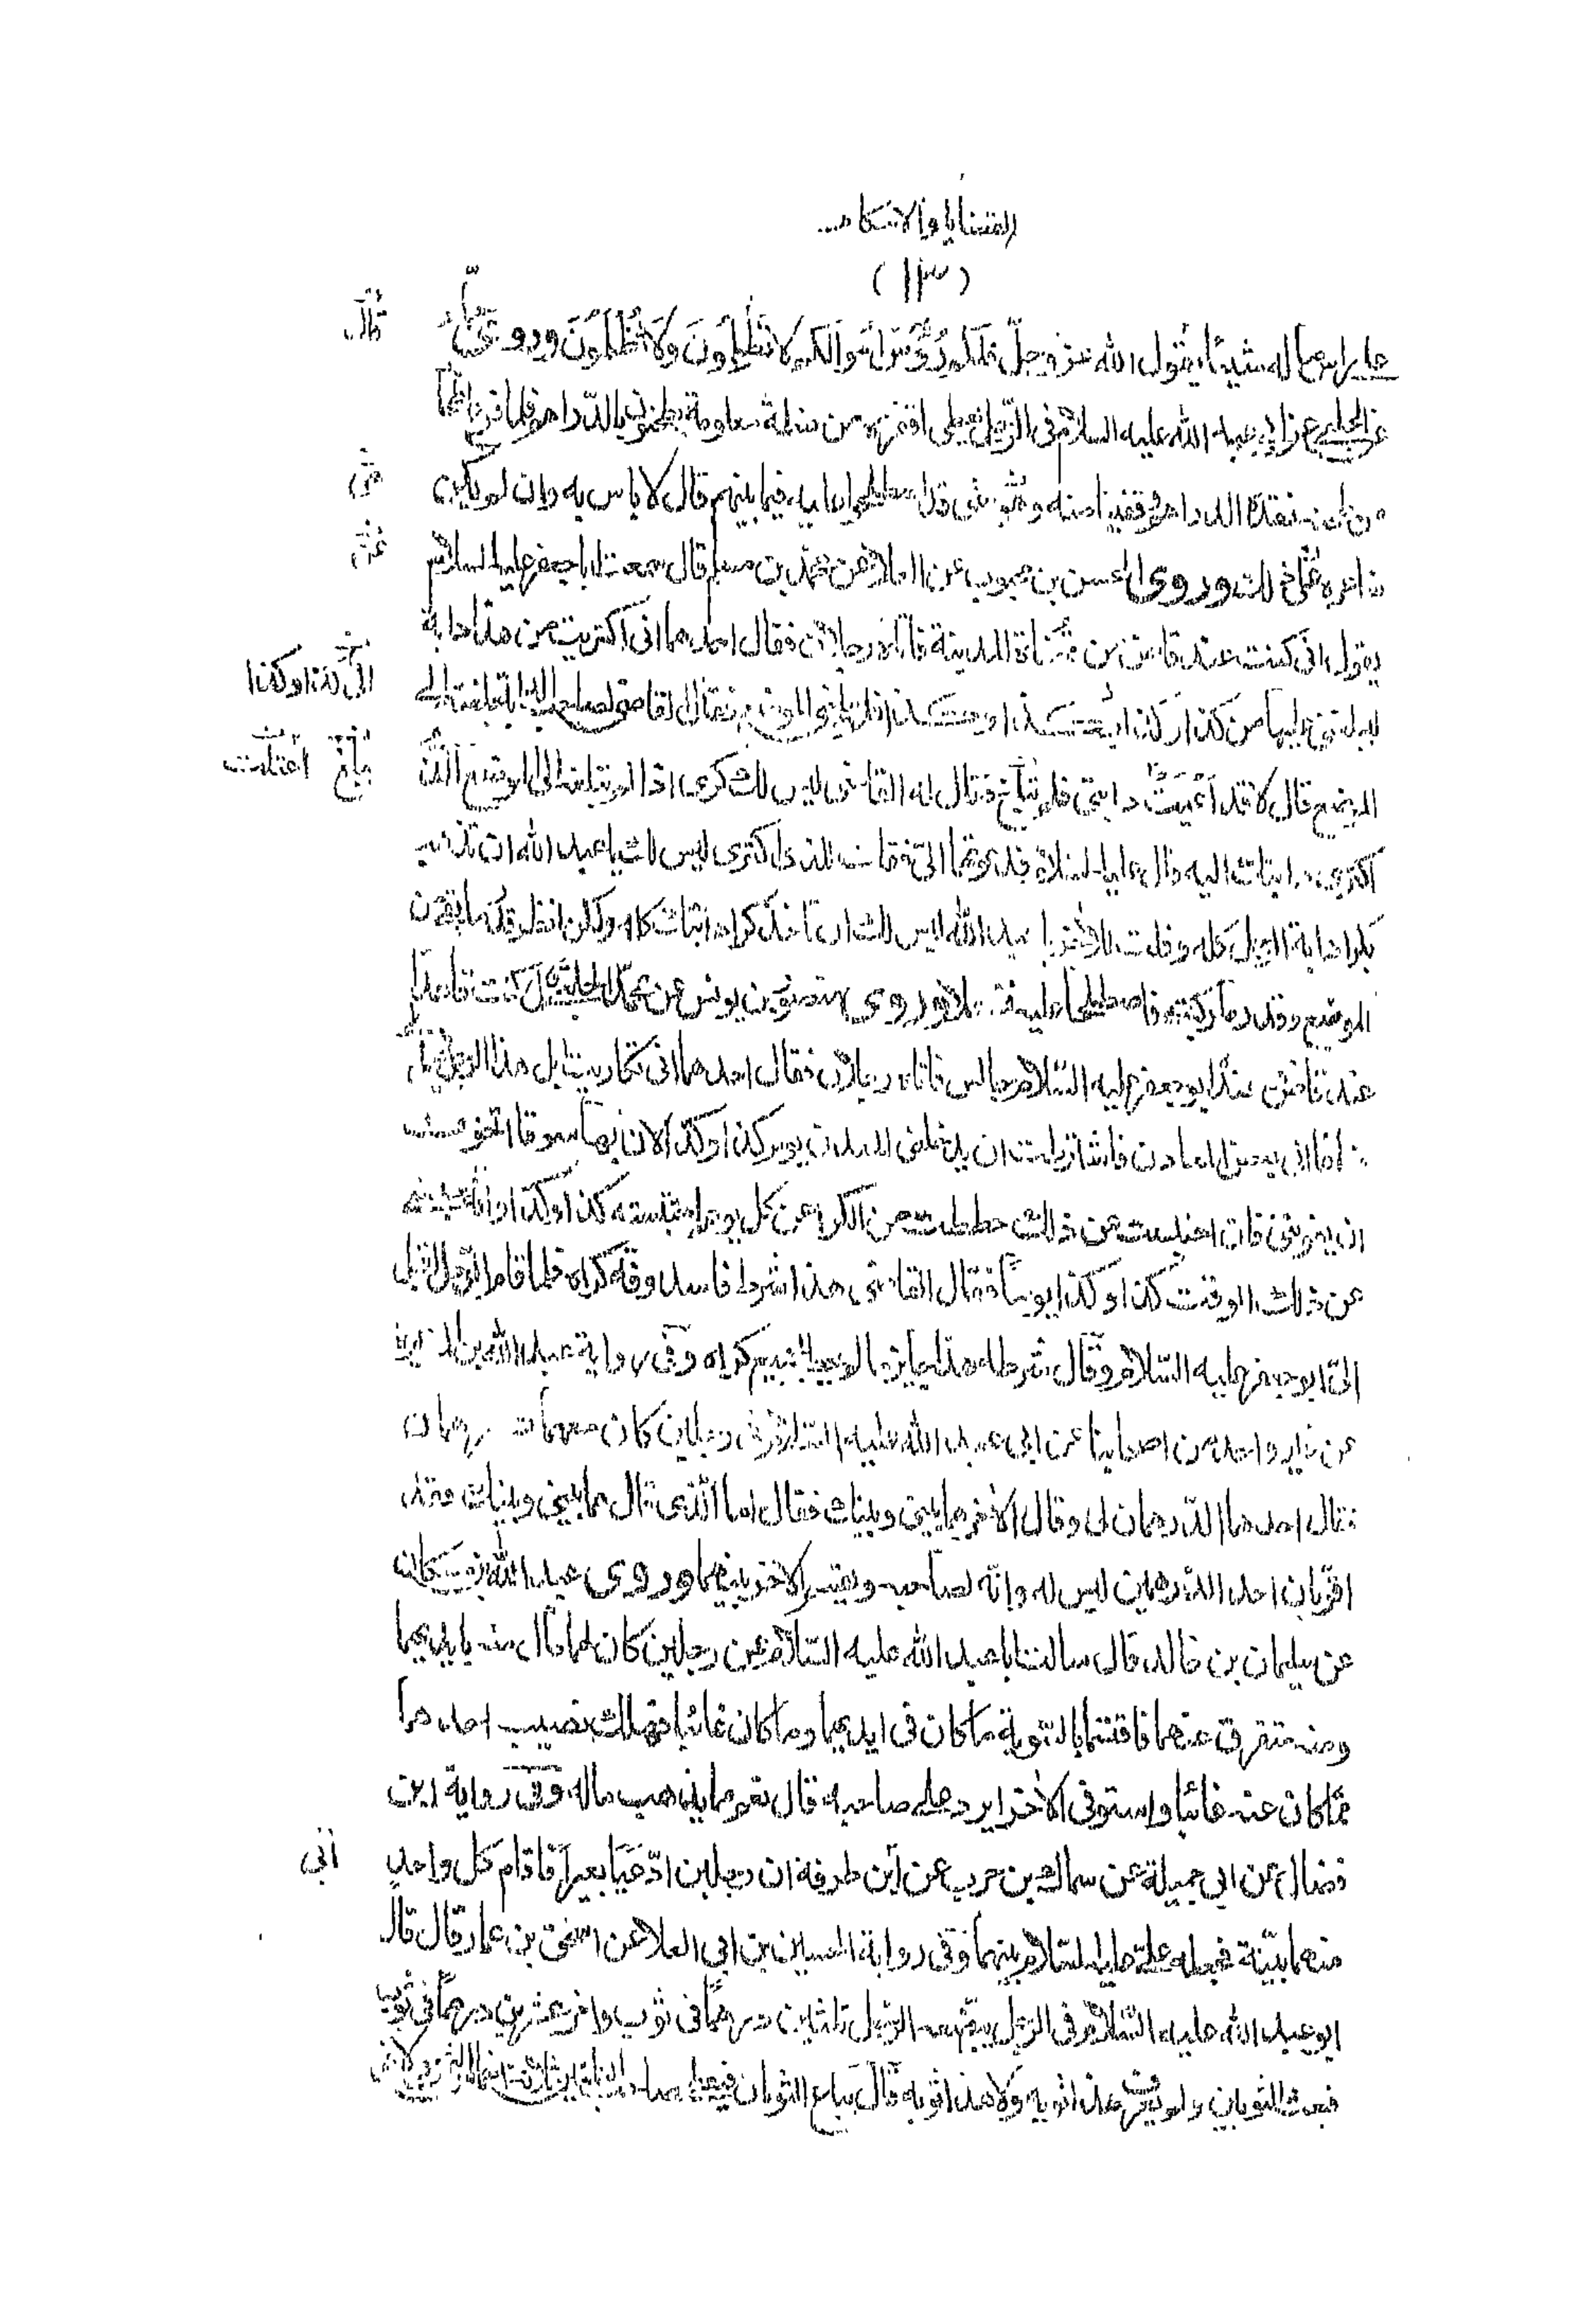 القضايا والاحكام
(١١٣)
على راس ماله شيئا يقول الله عز وجل فَلَكُمْ رُؤُسُ اَمْوَالِكُمْ لَا تَظْلِمُونَ وَلَا تُظْلَمُونَ وروى حماد
قال
عن الحلبي عن ابي عبد الله عليه السلام في الرجل يعطى اقفزة من حنطة معلومة يطحنون بالدراهم فلما فرغ الطحان
من طحنه نقده الدراهم وقفيزا منه وهو شئ قد اصطلحوا عليه فيما بينهم قال لا باس به وان لم يكن
ساعره على ذلك وروى الحسن بن محبوب عن العلا عن محمد بن مسلم قال سمعت ابا جعفر عليه السلام
يقول انى كنت عند قاض من قضاة المدينة فاتاه رجلان فقال احدهما انى اكتريت من هذا دابة
ليبلغنى عليها من كذا وكذا الى كذا وكذا فلم يبلغنى الموضع فقال القاضى لصاحب الدابة بلغته الى
الى كذا وكذا
الموضع قال لا قد اَعْيَتْ دابتى فلم تبلغ فقال له القاضى ليس لك كرى اذا لم تبلغه الى الموضع الذى
تبلغ اعتلت
اكترى دابتك اليه قال عليه السلام فدعوتهما الىّ فقلت للذى اكترى ليس لك يا عبد الله ان تذهب
بكراء دابة الرجل كله وقلت للاخر يا عبد الله ليس لك ان تاخذ كراء دابتك كله ولكن انظر قدر ما بقى من
الموضع وقدر ما ركبته فاصطلحا عليه ففعلا وروى منصور بن يونس عن محمد الحلبى قال كنت قاعدا
عند قاض عنده ابو جعفر عليه السلام جالس فاتاه رجلان فقال احدهما انى تكاريت ابل هذا الرجل
متاعا الى بعض المعادن فاشترطت ان يدخلنى المعدن يوم كذا وكذا لان بها سوقا اتخوف
ان يفوتنى فان احتبست عن ذلك حططت من الكراء عن كل يوم احتبسته كذا وكذا وانه حبسنى
عن ذلك الوقت كذا وكذا يوما فقال القاضى هذا شرط فاسد وفه كراه فلما قام الرجل اقبل
الىّ ابو جعفر عليه السلام وقال شرطه هذا جايز ما لم يحط بجميع كراه وفى رواية عبد الله بن المغيرة
عن غير واحد من اصحابنا عن ابى عبد الله عليه السلام فى رجلين كان معهما درهمان
فقال احدهما الدرهمان لى وقال الاخر هما بينى وبينك فقال اما الذى قال هما بينى وبينك فقد
اقر بان احد الدرهمين ليس له وانه لصاحبه ويقسم الاخر بينهما وروى عبد الله بن مسكان
عن سليمان بن خالد قال سالت ابا عبد الله عليه السلام عن رجلين كان لهما مال منه بايديهما
ومنه متفرق عنهما فاقتسما بالسوية ما كان فى ايديهما وما كان غائبا فهلك نصيب احدهما
مما كان عنه غائبا واستوفى الاخر ايرد على صاحبه قال نعم ما يذهب ماله وفى رواية ابن
فضال عن ابى جميلة عن سماك بن حرب عن ابن طرفة ان رجلين ادعيا بعيرا فاقام كل واحد
ابى
منهما بينة فجعله على عليه السلام بينهما وفى رواية الحسين بن ابى العلا عن اسحق بن عمار قال قال
ابو عبد الله عليه السلام فى الرجل يبضعه الرجل ثلثين درهما فى ثوب واخر عشرين درهما فى ثوب
فبعث الثوبين ولم يعرف هذا ثوبه ولا هذا ثوبه قال يباع الثوبان فيعطى صاحب الثلثين ثلثة اخماس الثمن